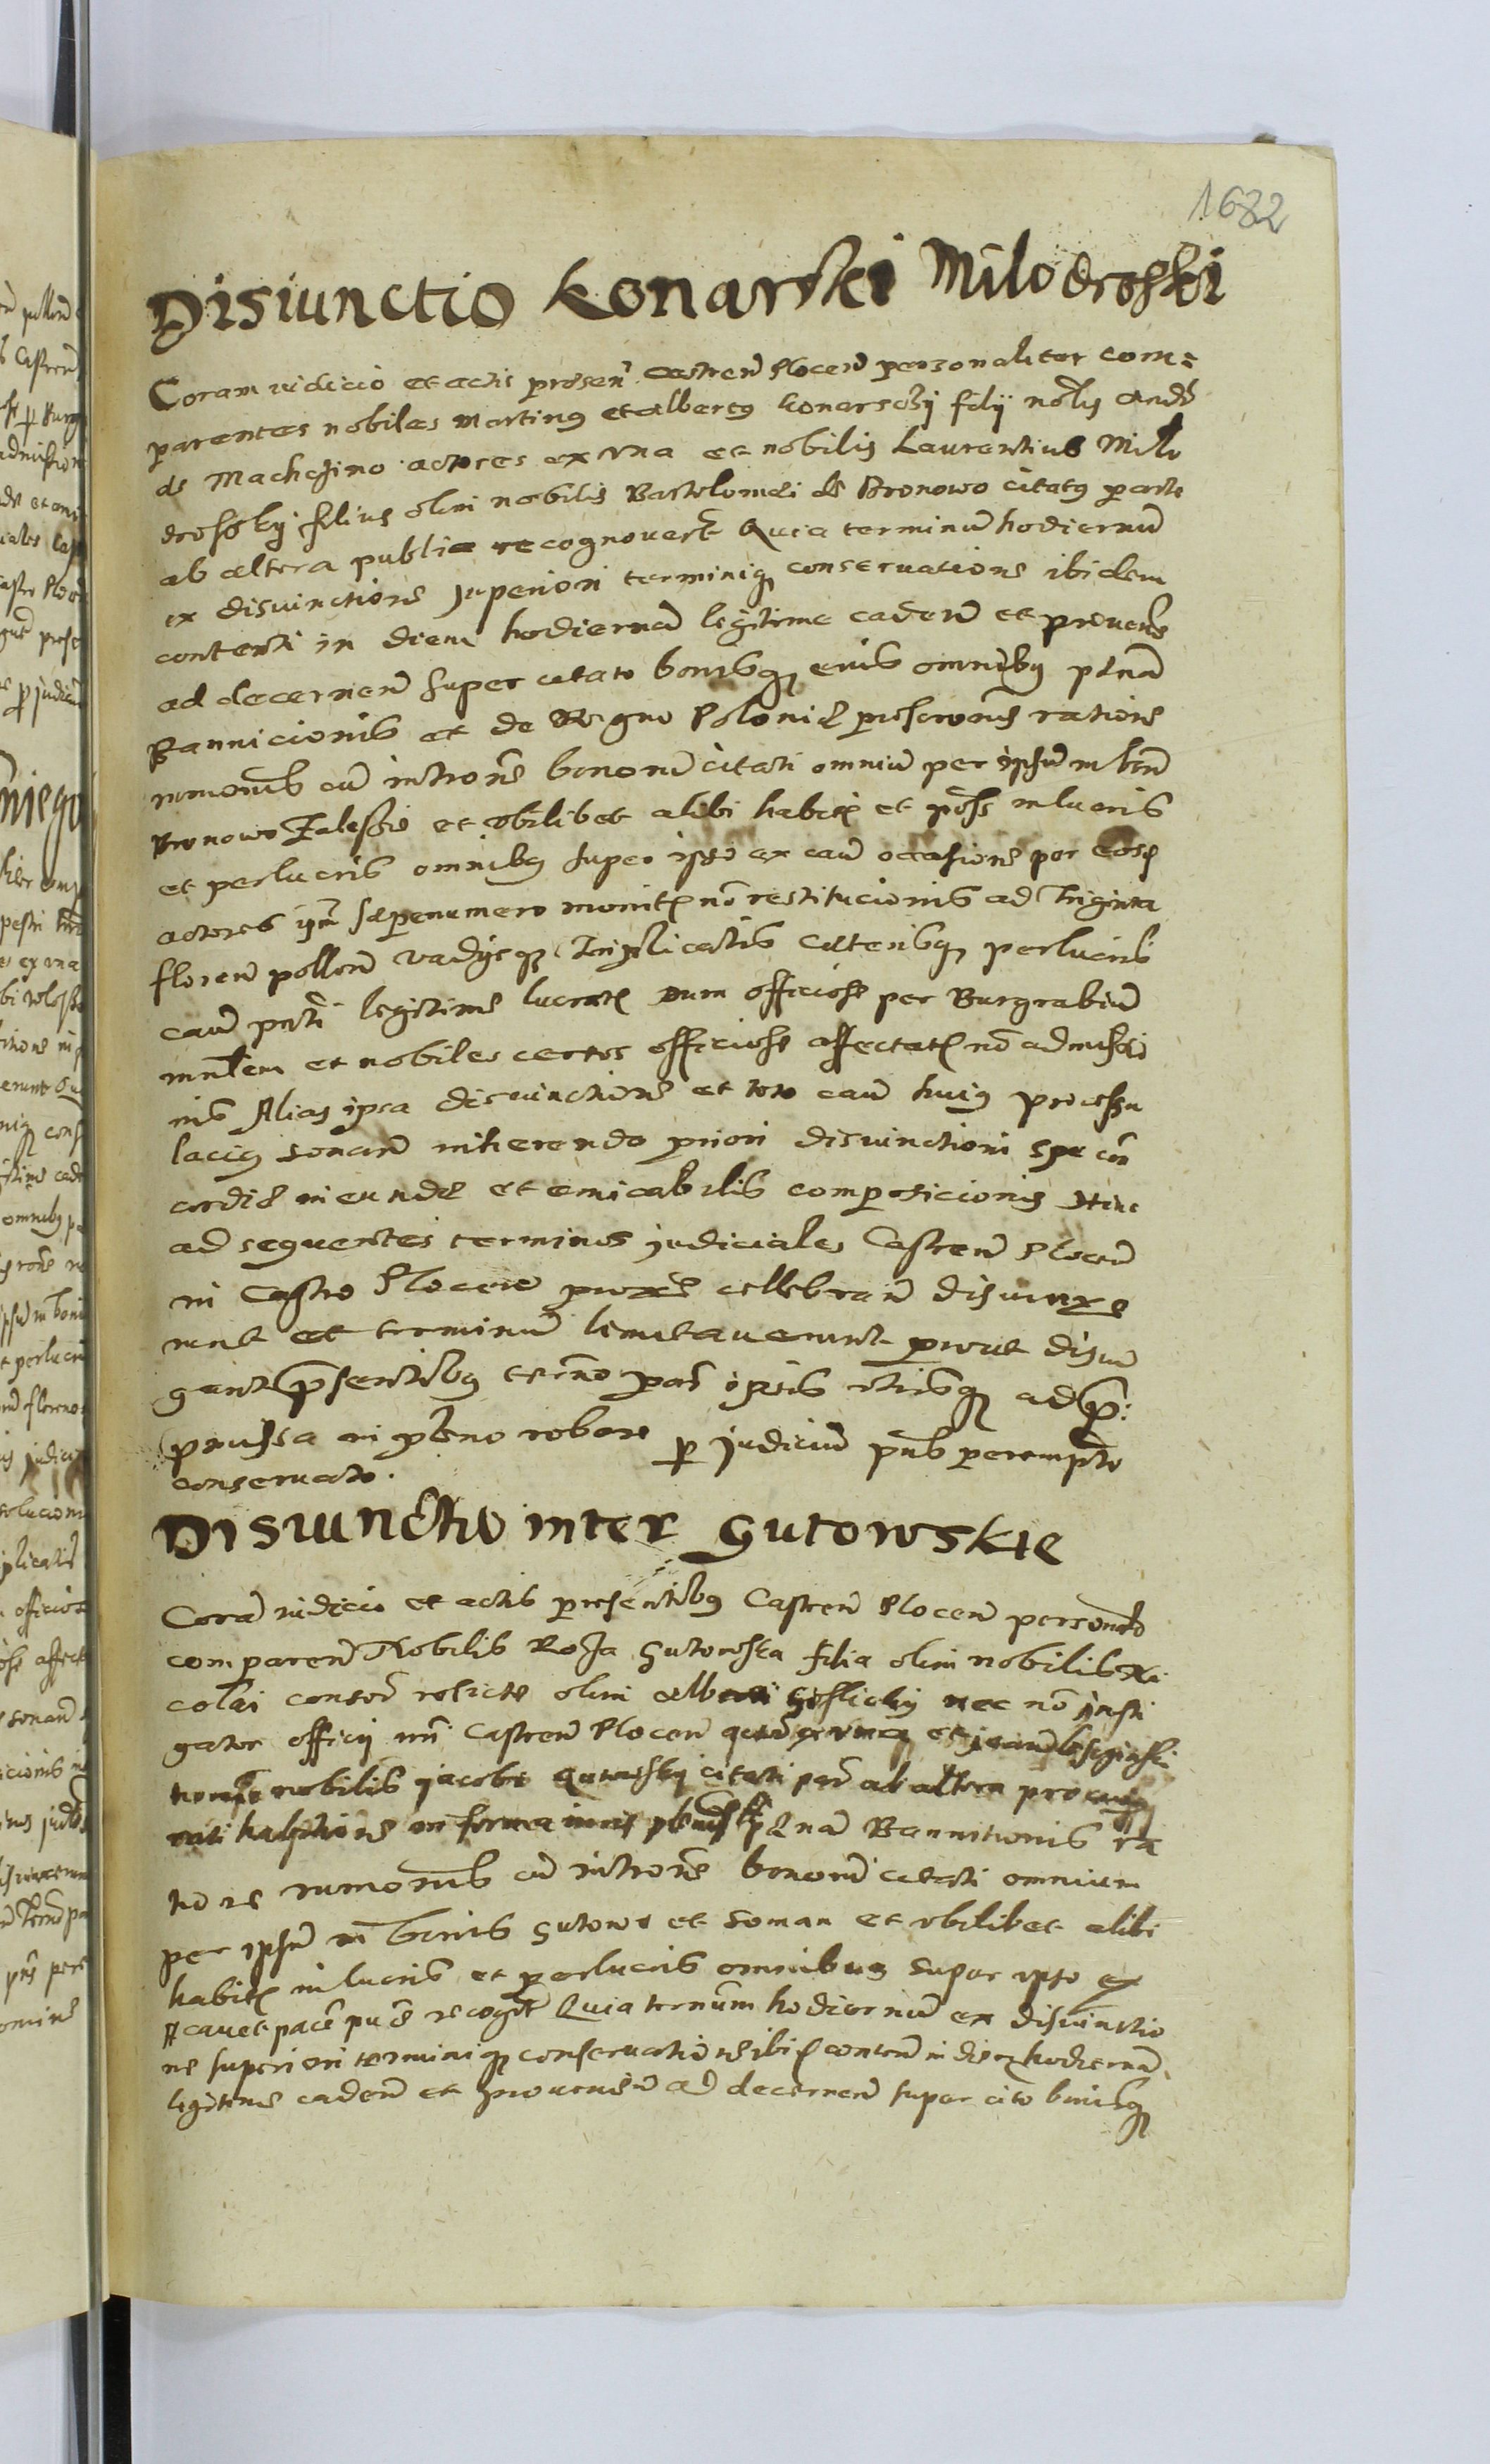 1682
Disiunctio Konarski Milodroski
Coram iudicio et actis presen castren Plocen personaliter com=
parentes nobiles Martinus et Albertus Konarsczy filij nobilis Andr
de Machczino actores ex vna et nobilis Laurentius Milo
drossky filius olim nobilis Bartolomei de Bronowo citatus parte
ab altera publice recognouert Quia terminu hodiernu
ex disiunctione superiori terminiq conseruatione ibidem
contenti in diem hodiernu legitime caden et prouenie
ad decernen super citato bonisq eius omnibus penam
Bannicionis et de Regno Polonie proscronis ratione
rumonis cu introne bonoru citati omniu per ipsum in bonis
Bronowo Zalessie et vbilibet alibi habit et poss in lucris
et perlucris omnibus super ipso ex cau occasione per eosd
actores ipm saepenumero monit no restitucionis ad Triginta
floren pollon vadijsq Triplicatis ceterisq perlucris
cau pnti legitime lucrat Dum officiose per Burgrabiu
mntem et nobiles certos officiose affectat no admissio
nis Alias ipsa disiunctione et toto cau huius processu
lacius sonan inherendo priori disiunctioni spe con
cordie ineunde et amicabilis composicionis Hinc
ad sequentes terminos judiciales Castren Plocen
in Castro Plocen proxe cellebran disiunxe
runt et terminu limitauerunt prout disiun
gunt presentibus termo part ipsis vtrisq ad p:
pmissa in pleno robore p judiciu pns perempto
conseruato.
Disiunctio inter Gutowskie
Cora iudicio et actis presentibus Castren Plocen personalr
comparen Nobilis Rosa Gutowska filia olim nobilis Ni
colai consors relicta olim Alberti nec no Insti
gator officij nri Castren Plocen
nobilis Jacobi Gutowsky citati par ab altera
in forma iuris penam Bannitionis ra
tione rumonis cu introne bonoru citati omnium
per ipsum in bonis Gutowo et Soman et vbilibet alibi
habit in lucris et perlucris omnibus super ipso ex
cau et pace puce recogt Quia termum hodiernu ex disiunctio
ne superiori terminiq conseruatione ibid conten in diem hodiernu
legitime caden et prouenien ad decernen super cito bonisq